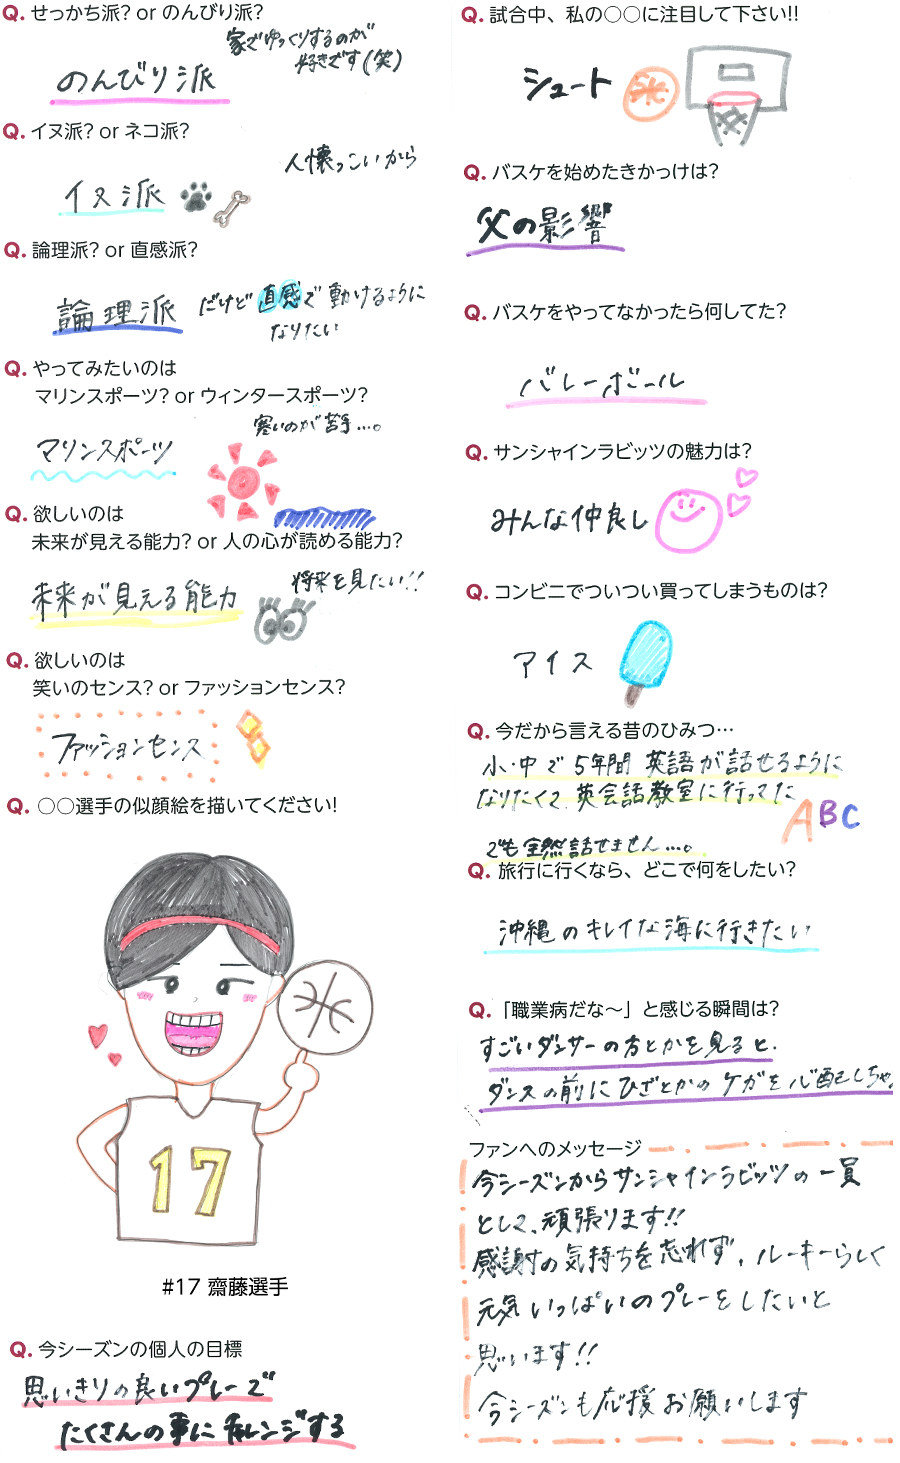 Q. せっかち派? or のんびり派?
家でゆっくりするのが
好きです(笑)
のんびり派
Q. イヌ派? or ネコ派?
人懐っこいから
イヌ派
Q. 論理派? or 直感派?
論理派 だけど直感で動けるように
なりたい
Q. やってみたいのは
マリンスポーツ? or ウィンタースポーツ?
寒いのが苦手…。
マリンスポーツ
Q. 欲しいのは
未来が見える能力? or 人の心が読める能力?
将来を見たい!!
未来が見える能力
Q. 欲しいのは
笑いのセンス? or ファッションセンス?
ファッションセンス
Q. ○○選手の似顔絵を描いてください!
17
#17 齋藤選手
Q. 今シーズンの個人の目標
思いきりの良いプレーで
たくさんの事にチャレンジする
Q. 試合中、私の○○に注目して下さい!!
シュート
Q. バスケを始めたきかっけは?
父の影響
Q. バスケをやってなかったら何してた?
バレーボール
Q. サンシャインラビッツの魅力は?
みんな仲良し
Q. コンビニでついつい買ってしまうものは?
アイス
Q. 今だから言える昔のひみつ…
小・中で5年間 英語が話せるように
なりたくて、英会話教室に行ってた
ABC
でも全然話せません…。
Q. 旅行に行くなら、どこで何をしたい?
沖縄のキレイな海に行きたい
Q. 「職業病だな〜」と感じる瞬間は?
すごいダンサーの方とかを見ると、
ダンスの前にひざとかのケガを心配しちゃう
ファンへのメッセージ
今シーズンからサンシャインラビッツの一員
として、頑張ります!!
感謝の気持ちを忘れず、ルーキーらしく
元気いっぱいのプレーをしたいと
思います!!
今シーズンも応援お願いします